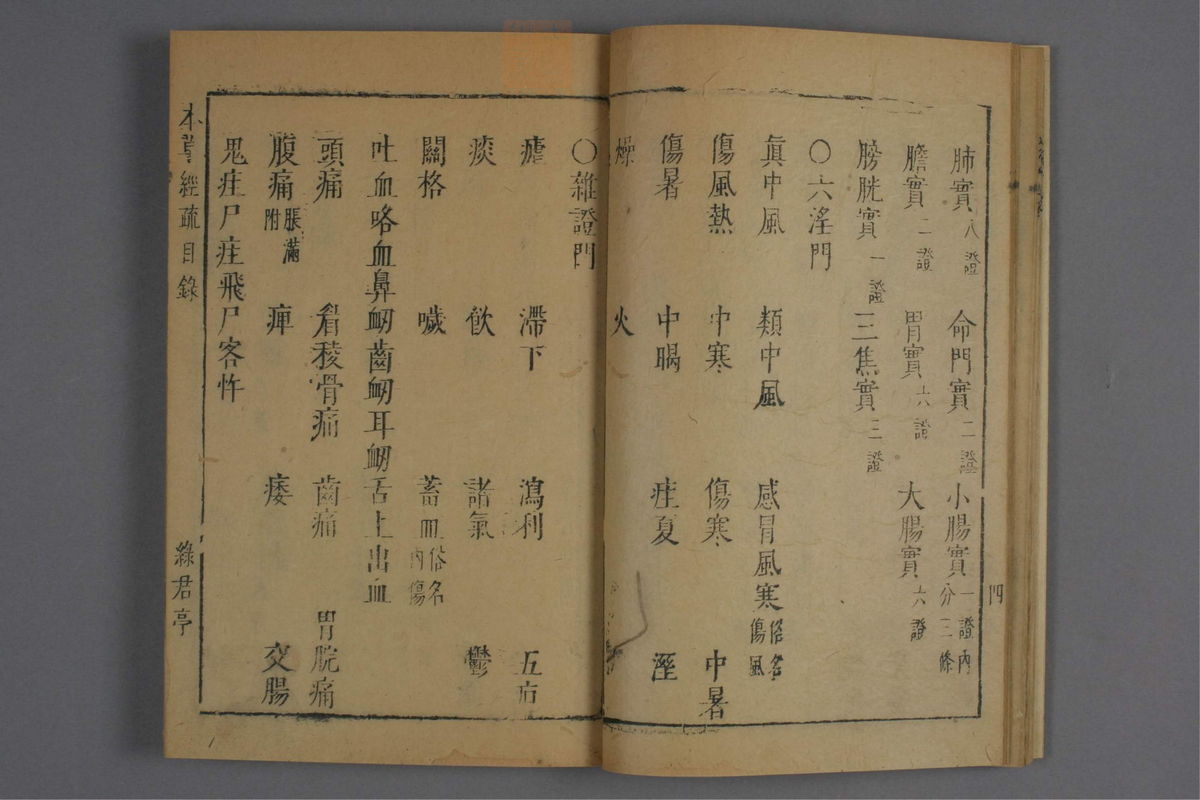 肺實八證 命門實二證 小腸實一證內分三條
膽實二證 胃實六證 大腸實六證
膀胱實一證 三焦實三證
〇六淫門
眞中風 類中風 感冒風寒俗名傷風
傷風熱 中寒 傷寒 中暑
傷暑 中暍 疰夏 溼
燥 火
〇雜證門
瘧 滯下 瀉利 五疸
痰 飲 諸氣 鬱
關格 噦 蓄血俗名內傷
吐血咯血鼻衂齒衂耳衂舌上出血
頭痛 眉稜骨痛 齒痛 胃脘痛
腹痛脹滿附 痺 痿 交腸
鬼疰尸疰飛尸客忤
本草經疏目錄 綠君亭
四